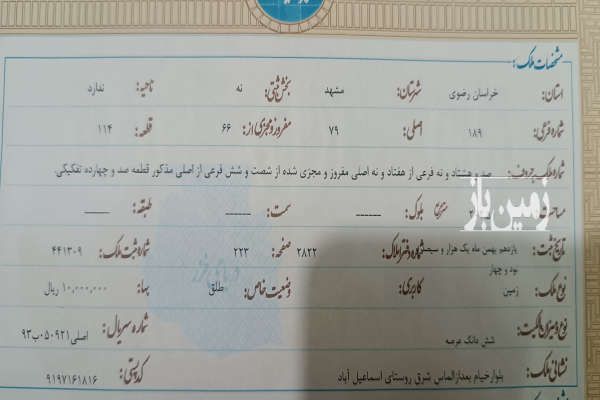 مشخصات ملک:
استان: خراسان رضوی شهرستان: مشهد بخش ثبتی: نه ناحیه: ندارد
شماره فرعی: ۱۸۹ اصلی: ۷۹ مفروز و مجزی از: ۶۶ قطعه: ۱۱۴
شماره ملک بحروف: صد و هشتاد و نه فرعی از هفتاد و نه اصلی مفروز و مجزی شده از شصت و شش فرعی از اصلی مذکور قطعه صد و چهارده تفکیکی.
زمین باز
مساحت متر مربع بلوک: ------ سمت: ------ طبقه: ------
تاریخ ثبت: یازدهم بهمن ماه یک هزار و سیصد نود و چهار شماره دفتر املاک: ۲۸۲۲ صفحه: ۲۲۳ شماره ثبت ملک: ۴۴۱۳۰۹
نوع ملک: زمین کاربری: وضعیت خاص: طلق بهاء: ۱۰,۰۰۰,۰۰۰ ریال
نوع و میزان مالکیت: شش دانگ عرصه شماره سریال: اصلی ۰۵۰۹۲۱ب۹۳
نشانی ملک: بلوارخیام بعدازالماس شرق روستای اسماعیل آباد کدپستی: ۹۱۹۷۱۶۱۸۱۶